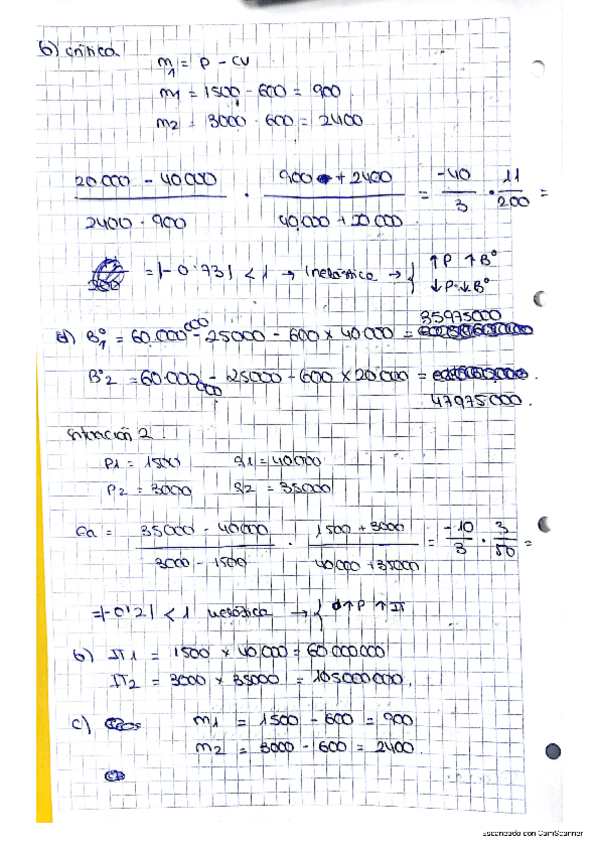 b) crítica
m1 = P - CV
m1 = 1500 - 600 = 900
m2 = 3000 - 600 = 2400
20.000 - 40000 / 2400 - 900 · 900 + 2400 / 40.000 + 20.000 = -40/3 · 11/200 =
= |-0'73| < 1 → Inelástica → { ↑P ↑Bº
↓P ↓Bº
35975000
d) Bº1 = 60.000.000 - 25000 - 600 x 40000 =
Bº2 = 60.000.000 - 25000 - 600 x 20000 =
47975000.
Situación 2.
P1 = 1500 q1 = 40000
P2 = 3000 q2 = 35000
Ea = 35000 - 40000 / 3000 - 1500 · 1500 + 3000 / 40000 + 35000 = -10/3 · 3/50 =
= |-0'2| < 1 inelástica → { ↑P ↑IT
b) IT1 = 1500 x 40.000 = 60.000000
IT2 = 3000 x 35000 = 105000000.
c) m1 = 1500 - 600 = 900
m2 = 3000 - 600 = 2400.
Escaneado con CamScanner